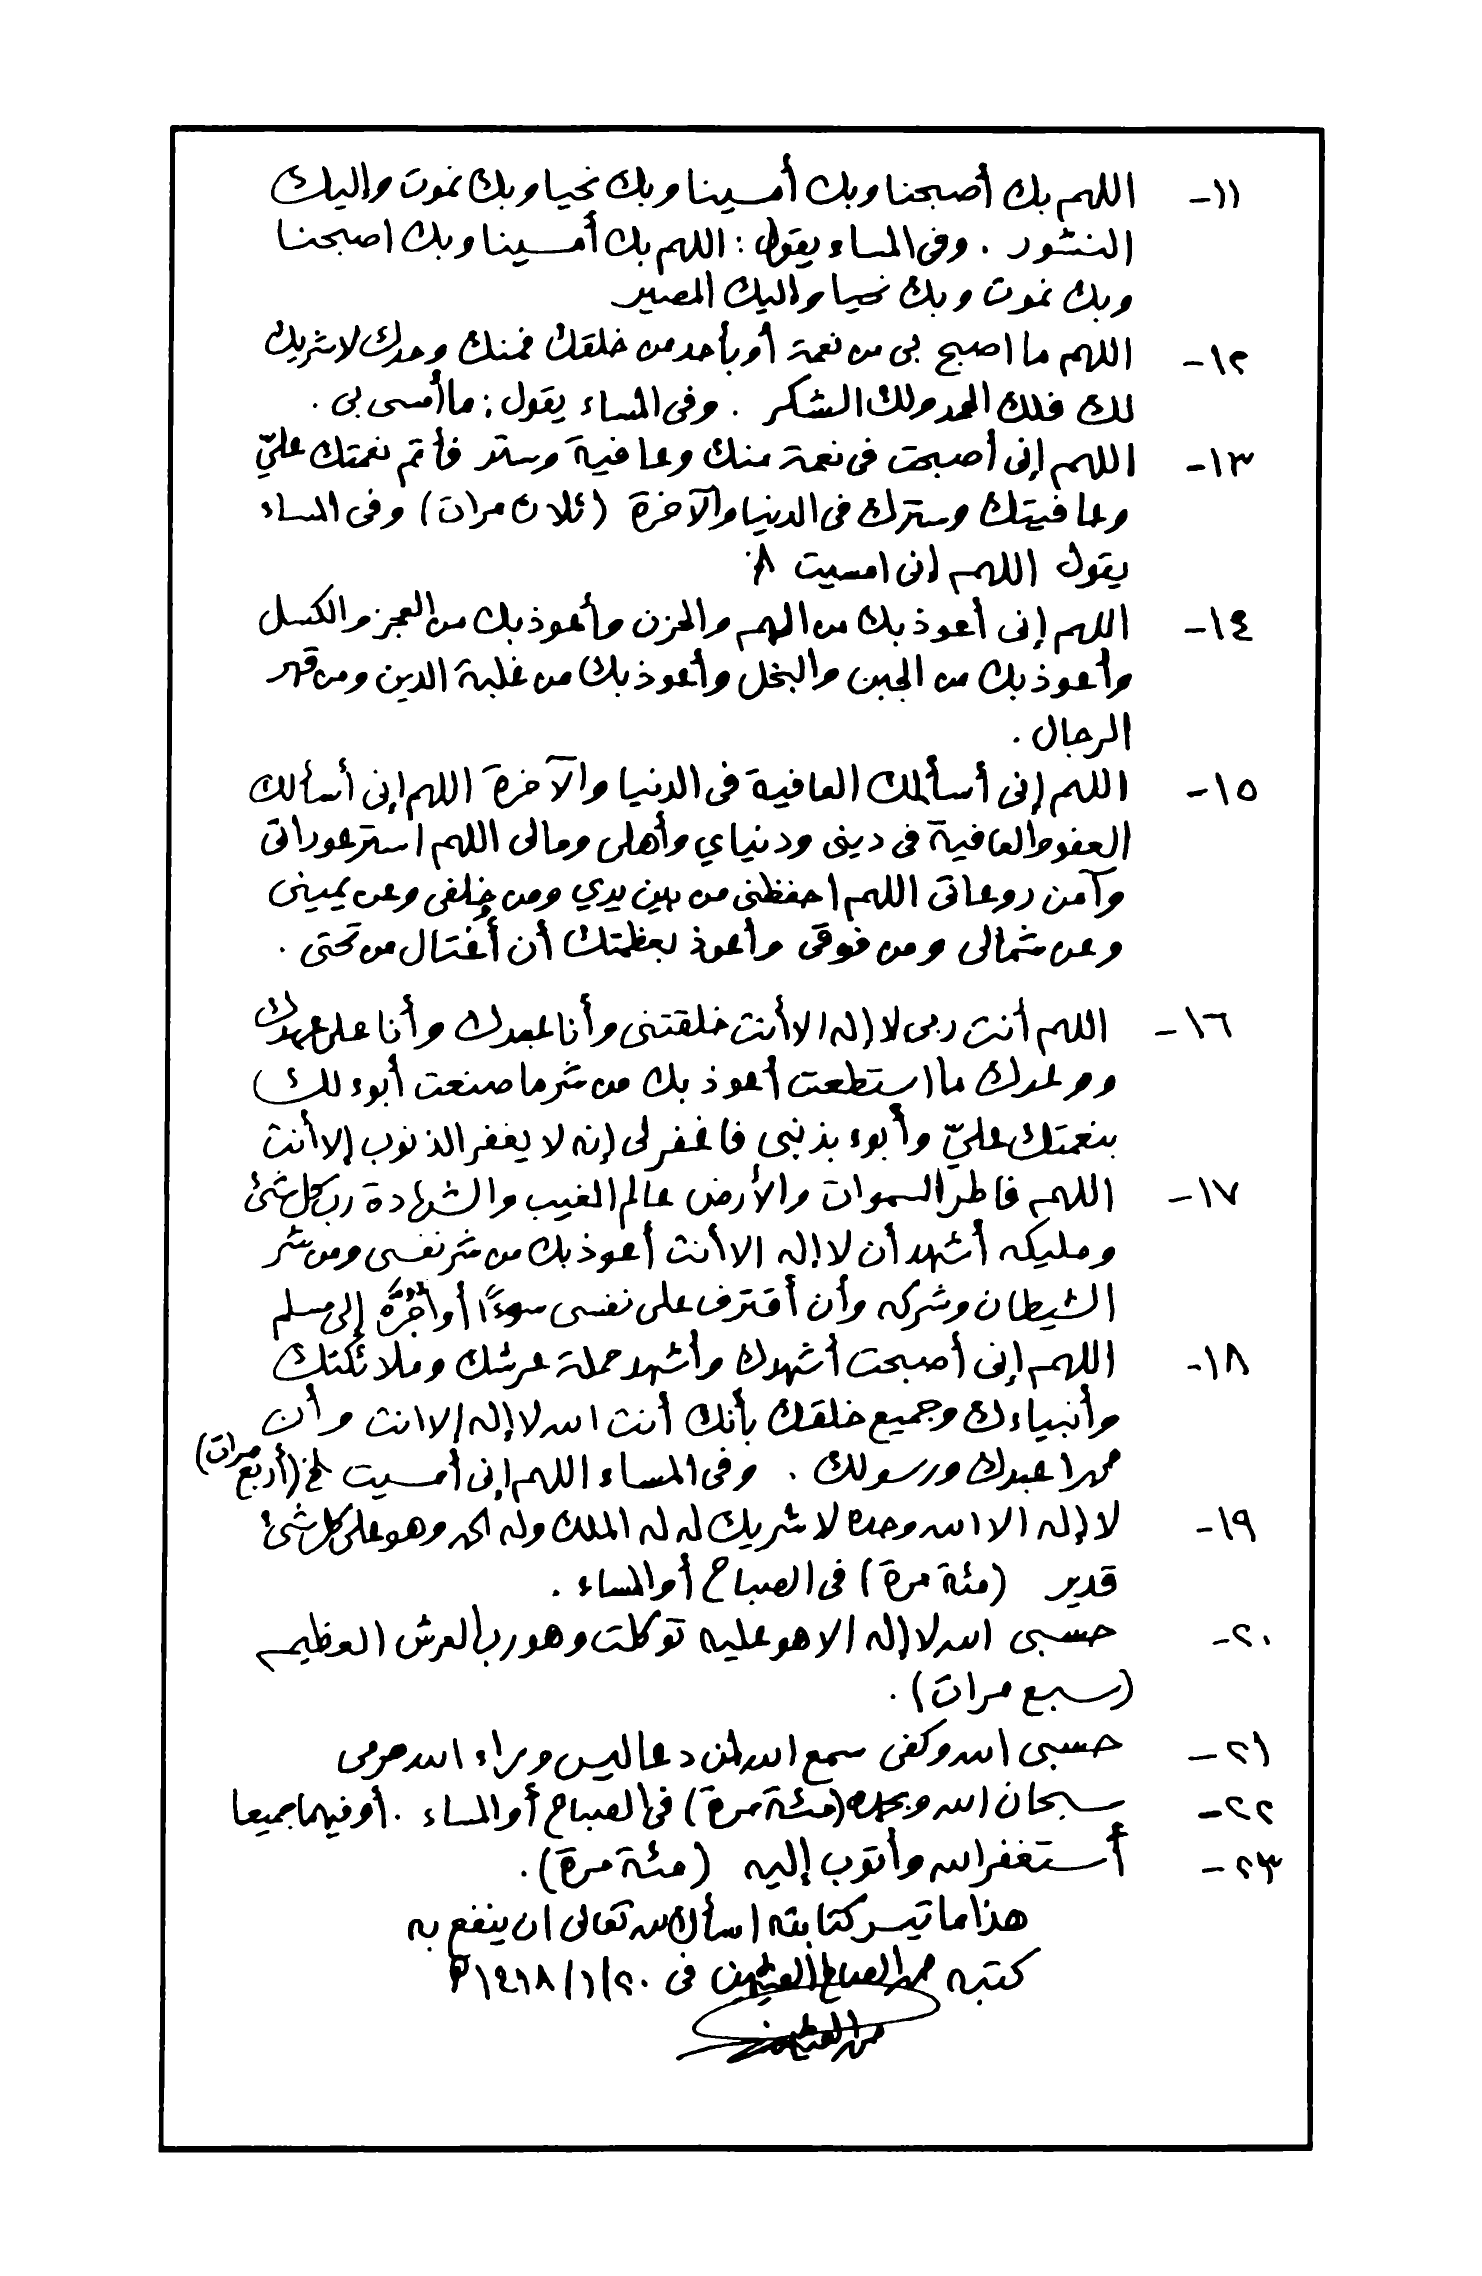 ١١- اللهم بك أصبحنا وبك أمسينا وبك نحيا وبك نموت وإليك
النشور . وفى المساء يقول : اللهم بك أمسينا وبك اصبحنا
وبك نموت وبك نحيا وإليك المصير
١٢- اللهم ما اصبح بى من نعمة أو بأحد من خلقك فمنك وحدك لا شريك
لك فلك الحمد ولك الشكر . وفى المساء يقول : ما أمسى بى .
١٣- اللهم إنى أصبحت فى نعمة منك وعافية وستر فأتم نعمتك عليّ
وعافيتك وسترك فى الدنيا والآخرة (ثلاث مرات) وفى المساء
يقول اللهم إنى امسيت
١٤- اللهم إنى أعوذ بك من الهم والحزن وأعوذ بك من العجز والكسل
وأعوذ بك من الجبن والبخل وأعوذ بك من غلبة الدين ومن قهر
الرجال .
١٥- اللهم إنى أسألك العافية فى الدنيا والآخرة اللهم إنى أسألك
العفو والعافية فى دينى ودنياي وأهلى ومالى اللهم استر عوراتى
وآمن روعاتى اللهم احفظنى من بين يدي ومن خلفى وعن يمينى
وعن شمالى ومن فوقى وأعوذ بعظمتك أن أغتال من تحتى .
١٦- اللهم أنت ربى لا إله الا أنت خلقتنى وأنا عبدك وأنا على عهدك
ووعدك ما استطعت أعوذ بك من شر ما صنعت أبوء لك
بنعمتك عليّ وأبوء بذنبى فاغفر لى إنه لا يغفر الذنوب إلا أنت
١٧- اللهم فاطر السموات والأرض عالم الغيب والشهادة رب كل شئ
ومليكه أشهد أن لا إله الا أنت أعوذ بك من شر نفسى ومن شر
الشيطان وشركه وأن أقترف على نفسى سوءًا أو أجُرَّه إلى مسلم
١٨- اللهم إنى أصبحت أشهدك وأشهد حملة عرشك وملائكتك
وأنبياءك وجميع خلقك بأنك أنت الله لا إله إلا انت وأن
محمدا عبدك ورسولك . وفى المساء اللهم إنى أمسيت إلخ (أربع مرات)
١٩- لا إله الا الله وحده لا شريك له له الملك وله الحمد وهو على كل شئ
قدير (مئة مرة) فى الصباح أو المساء .
٢٠- حسبى الله لا إله الا هو عليه توكلت وهو رب العرش العظيم
(سبع مرات) .
٢١- حسبى الله وكفى سمع الله لمن دعا ليس وراء الله مرمى
٢٢- سبحان الله وبحمده (مئة مرة) فى الصباح أو المساء . أو فيهما جميعا
٢٣- أستغفر الله وأتوب إليه (مئة مرة) .
هذا ما تيسر كتابته اسأل الله تعالى ان ينفع به
كتبه محمد الصالح العثيمين فى ٢٠/١/١٤١٨
محمد العثيمين